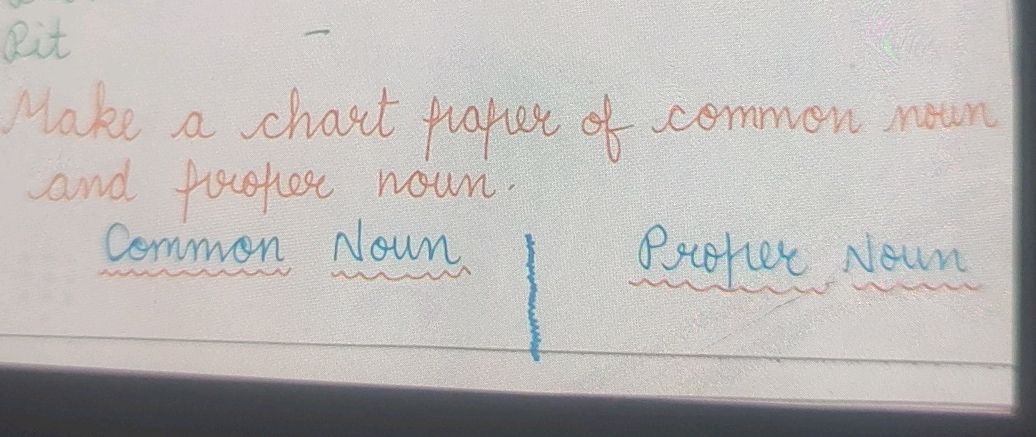 Pit -
Make a chart paper of common noun
and proper noun.
Common Noun | Proper Noun